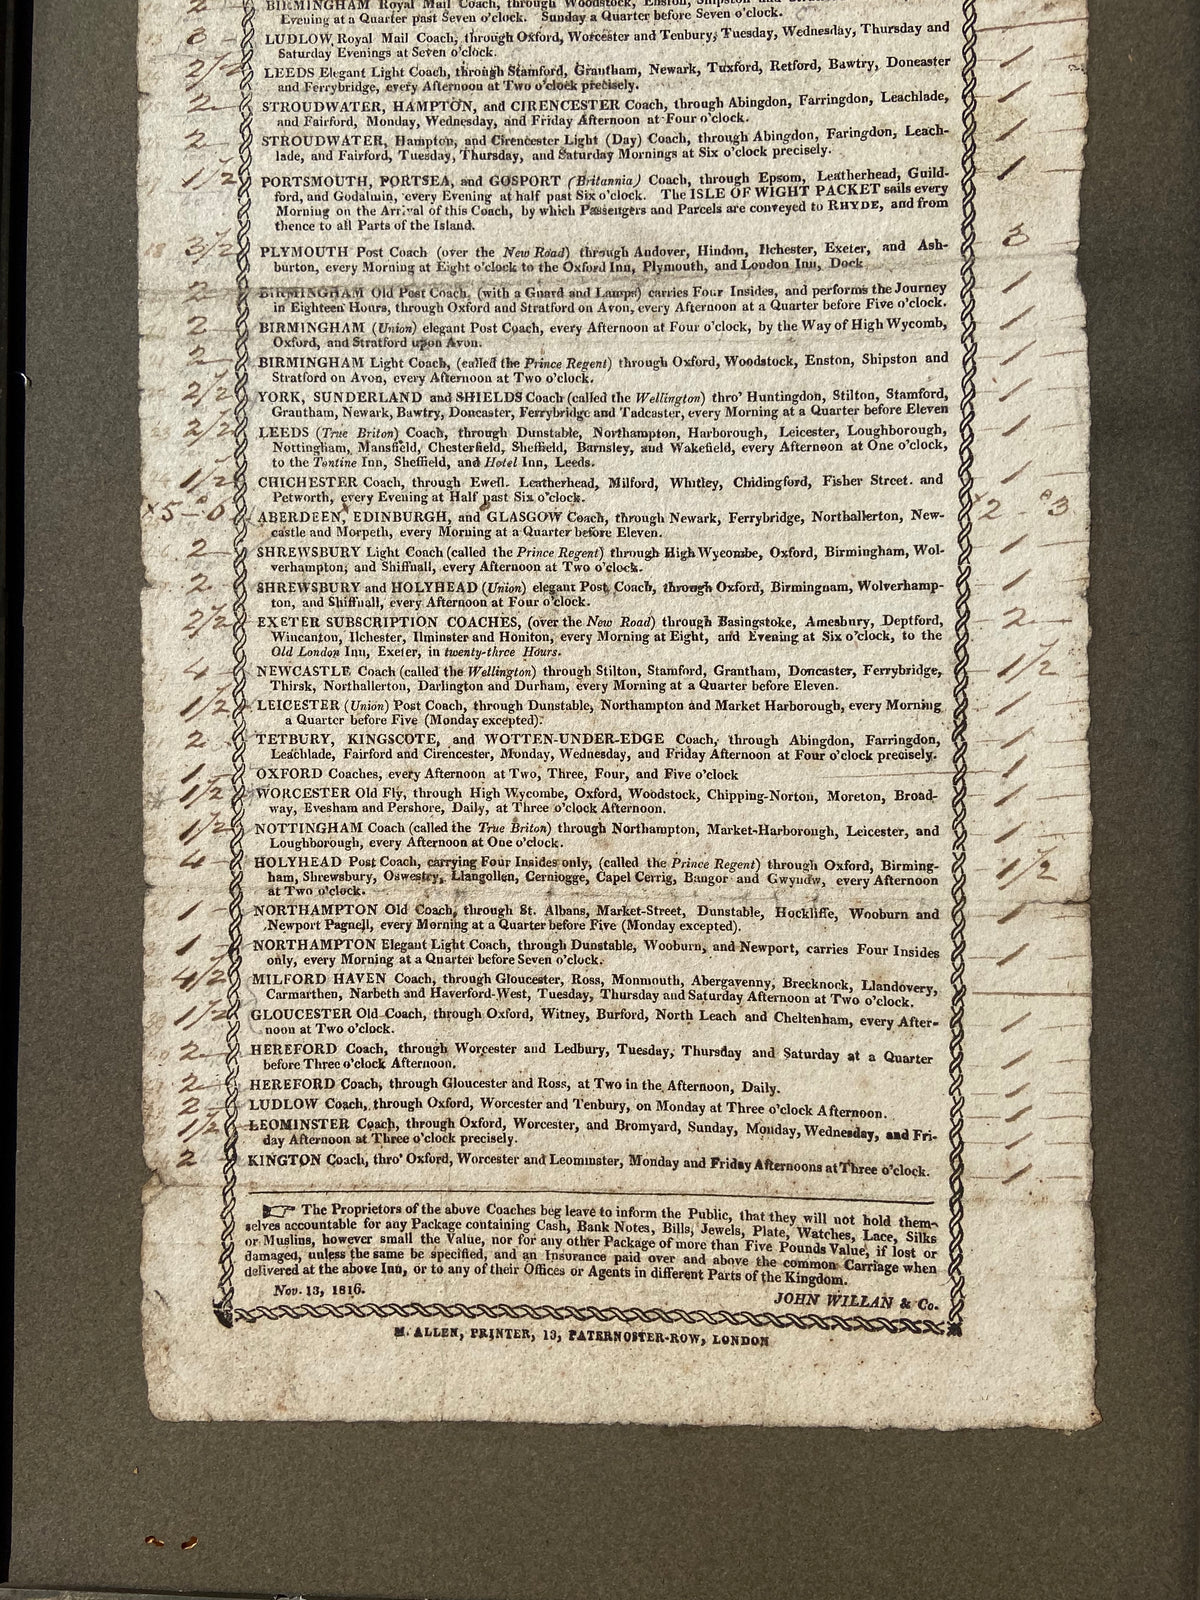 2 BIRMINGHAM Royal Mail Coach, through Woodstock, Enston, Shipston and
Evening at a Quarter past Seven o'clock. Sunday a Quarter before Seven o'clock.
LUDLOW Royal Mail Coach, through Oxford, Worcester and Tenbury, Tuesday, Wednesday, Thursday and 1
Saturday Evenings at Seven o'clock.
2 1/2 LEEDS Elegant Light Coach, through Stamford, Grantham, Newark, Tuxford, Retford, Bawtry, Doncaster 1
and Ferrybridge, every Afternoon at Two o'clock precisely.
2 STROUDWATER, HAMPTON, and CIRENCESTER Coach, through Abingdon, Farringdon, Leachlade, 1
and Fairford, Monday, Wednesday, and Friday Afternoon at Four o'clock.
2 STROUDWATER, Hampton, and Cirencester Light (Day) Coach, through Abingdon, Faringdon, Leach- 1
lade, and Fairford, Tuesday, Thursday, and Saturday Mornings at Six o'clock precisely.
1 1/2 PORTSMOUTH, PORTSEA, and GOSPORT (Britannia) Coach, through Epsom, Leatherhead, Guild- 1
ford, and Godalmin, every Evening at half past Six o'clock. The ISLE OF WIGHT PACKET sails every
Morning on the Arrival of this Coach, by which Passengers and Parcels are conveyed to RHYDE, and from
thence to all Parts of the Island.
3 1/2 PLYMOUTH Post Coach (over the New Road) through Andover, Hindon, Ilchester, Exeter, and Ash- 3
burton, every Morning at Eight o'clock to the Oxford Inn, Plymouth, and London Inn, Dock
2 BIRMINGHAM Old Post Coach, (with a Guard and Lamps) carries Four Insides, and performs the Journey 1
in Eighteen Hours, through Oxford and Stratford on Avon, every Afternoon at a Quarter before Five o'clock.
2 BIRMINGHAM (Union) elegant Post Coach, every Afternoon at Four o'clock, by the Way of High Wycomb, 1
Oxford, and Stratford upon Avon.
2 BIRMINGHAM Light Coach, (called the Prince Regent) through Oxford, Woodstock, Enston, Shipston and 1
Stratford on Avon, every Afternoon at Two o'clock.
2 1/2 YORK, SUNDERLAND and SHIELDS Coach (called the Wellington) thro' Huntingdon, Stilton, Stamford, 1
Grantham, Newark, Bawtry, Doncaster, Ferrybridge and Tadcaster, every Morning at a Quarter before Eleven
2 1/2 LEEDS (True Briton) Coach, through Dunstable, Northampton, Harborough, Leicester, Loughborough, 1
Nottingham, Mansfield, Chesterfield, Sheffield, Barnsley, and Wakefield, every Afternoon at One o'clock,
to the Tontine Inn, Sheffield, and Hotel Inn, Leeds.
1 1/2 CHICHESTER Coach, through Ewell. Leatherhead, Milford, Whitley, Chidingford, Fisher Street. and 1
Petworth, every Evening at Half past Six o'clock.
x5 - 6 ABERDEEN, EDINBURGH, and GLASGOW Coach, through Newark, Ferrybridge, Northallerton, New- x2 3
castle and Morpeth, every Morning at a Quarter before Eleven.
2 SHREWSBURY Light Coach (called the Prince Regent) through High Wycombe, Oxford, Birmingham, Wol- 1
verhampton, and Shiffnall, every Afternoon at Two o'clock.
2 SHREWSBURY and HOLYHEAD (Union) elegant Post Coach, through Oxford, Birmingnam, Wolverhamp- 1
ton, and Shiffnall, every Afternoon at Four o'clock.
2 1/2 EXETER SUBSCRIPTION COACHES, (over the New Road) through Basingstoke, Amesbury, Deptford, 2
Wincanton, Ilchester, Ilminster and Honiton, every Morning at Eight, and Evening at Six o'clock, to the
Old London Inn, Exeter, in twenty-three Hours.
4 NEWCASTLE Coach (called the Wellington) through Stilton, Stamford, Grantham, Doncaster, Ferrybridge, 1 1/2
Thirsk, Northallerton, Darlington and Durham, every Morning at a Quarter before Eleven.
1 1/2 LEICESTER (Union) Post Coach, through Dunstable, Northampton and Market Harborough, every Morning 1
a Quarter before Five (Monday excepted).
2 TETBURY, KINGSCOTE, and WOTTEN-UNDER-EDGE Coach, through Abingdon, Farringdon, 1
Leachlade, Fairford and Cirencester, Monday, Wednesday, and Friday Afternoon at Four o'clock precisely.
1 OXFORD Coaches, every Afternoon at Two, Three, Four, and Five o'clock 1
1 1/2 WORCESTER Old Fly, through High Wycombe, Oxford, Woodstock, Chipping-Norton, Moreton, Broad- 1
way, Evesham and Pershore, Daily, at Three o'clock Afternoon.
1 1/2 NOTTINGHAM Coach (called the True Briton) through Northampton, Market-Harborough, Leicester, and 1
Loughborough, every Afternoon at One o'clock.
4 HOLYHEAD Post Coach, carrying Four Insides only, (called the Prince Regent) through Oxford, Birming- 1 1/2
ham, Shrewsbury, Oswestry, Llangollen, Cerniogge, Capel Cerrig, Bangor and Gwyndw, every Afternoon
at Two o'clock.
1 NORTHAMPTON Old Coach, through St. Albans, Market-Street, Dunstable, Hockliffe, Wooburn and 1
Newport Pagnell, every Morning at a Quarter before Five (Monday excepted).
1 NORTHAMPTON Elegant Light Coach, through Dunstable, Wooburn, and Newport, carries Four Insides 1
only, every Morning at a Quarter before Seven o'clock.
4 1/2 MILFORD HAVEN Coach, through Gloucester, Ross, Monmouth, Abergavenny, Brecknock, Llandovery,
Carmarthen, Narbeth and Haverford-West, Tuesday, Thursday and Saturday Afternoon at Two o'clock.
1 1/2 GLOUCESTER Old Coach, through Oxford, Witney, Burford, North Leach and Cheltenham, every After- 1
noon at Two o'clock.
2 HEREFORD Coach, through Worcester and Ledbury, Tuesday, Thursday and Saturday at a Quarter 1
before Three o'clock Afternoon.
2 HEREFORD Coach, through Gloucester and Ross, at Two in the Afternoon, Daily. 1
2 LUDLOW Coach, through Oxford, Worcester and Tenbury, on Monday at Three o'clock Afternoon. 1
1 1/2 LEOMINSTER Coach, through Oxford, Worcester, and Bromyard, Sunday, Monday, Wednesday, and Fri- 1
day Afternoon at Three o'clock precisely.
2 KINGTON Coach, thro' Oxford, Worcester and Leominster, Monday and Friday Afternoons at Three o'clock. 1
☞ The Proprietors of the above Coaches beg leave to inform the Public, that they will not hold them-
selves accountable for any Package containing Cash, Bank Notes, Bills, Jewels, Plate, Watches, Lace, Silks
or Muslins, however small the Value, nor for any other Package of more than Five Pounds Value, if lost or
damaged, unless the same be specified, and an Insurance paid over and above the common Carriage when
delivered at the above Inn, or to any of their Offices or Agents in different Parts of the Kingdom.
Nov. 13, 1816.
JOHN WILLAN & Co.
M. ALLEN, PRINTER, 13, PATERNOSTER-ROW, LONDON